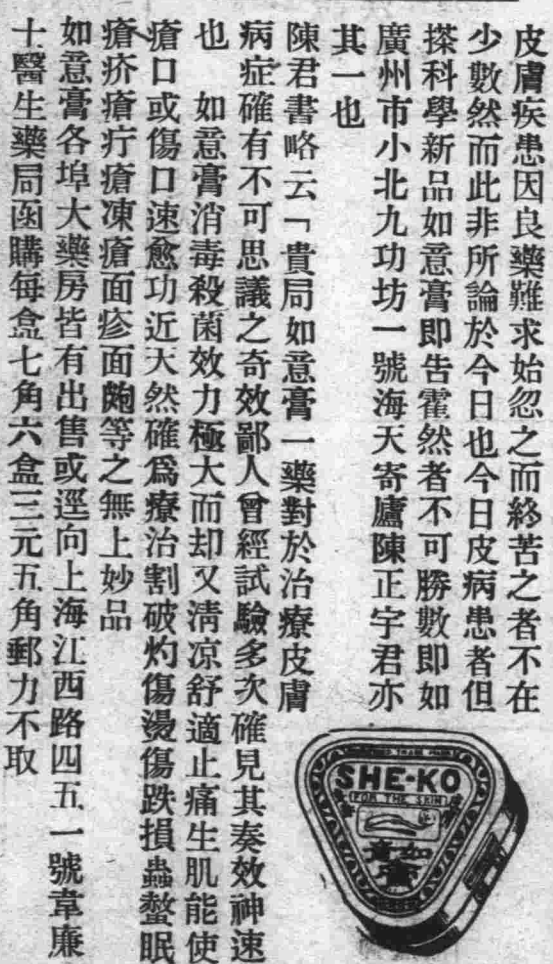 皮膚疾患因良藥難求始忽之而終苦之者不在
少數然而此非所論於今日也今日皮病患者但
搽科學新品如意膏即告霍然者不可勝數即如
廣州市小北九功坊一號海天寄廬陳正宇君亦
其一也
陳君書略云「貴局如意膏一藥對於治療皮膚
病症確有不可思議之奇效鄙人曾經試驗多次確見其奏效神速
也 如意膏消毒殺菌效力極大而却又淸凉舒適止痛生肌能使
瘡口或傷口速愈功近天然確爲療治割破灼傷燙傷跌損蟲螫眠
瘡疥瘡疔瘡凍瘡面疹面皰等之無上妙品
如意膏各埠大藥房皆有出售或逕向上海江西路四五一號韋廉
士醫生藥局函購每盒七角六盒三元五角郵力不取
SHE-KO
FOR THE SKIN
如意膏